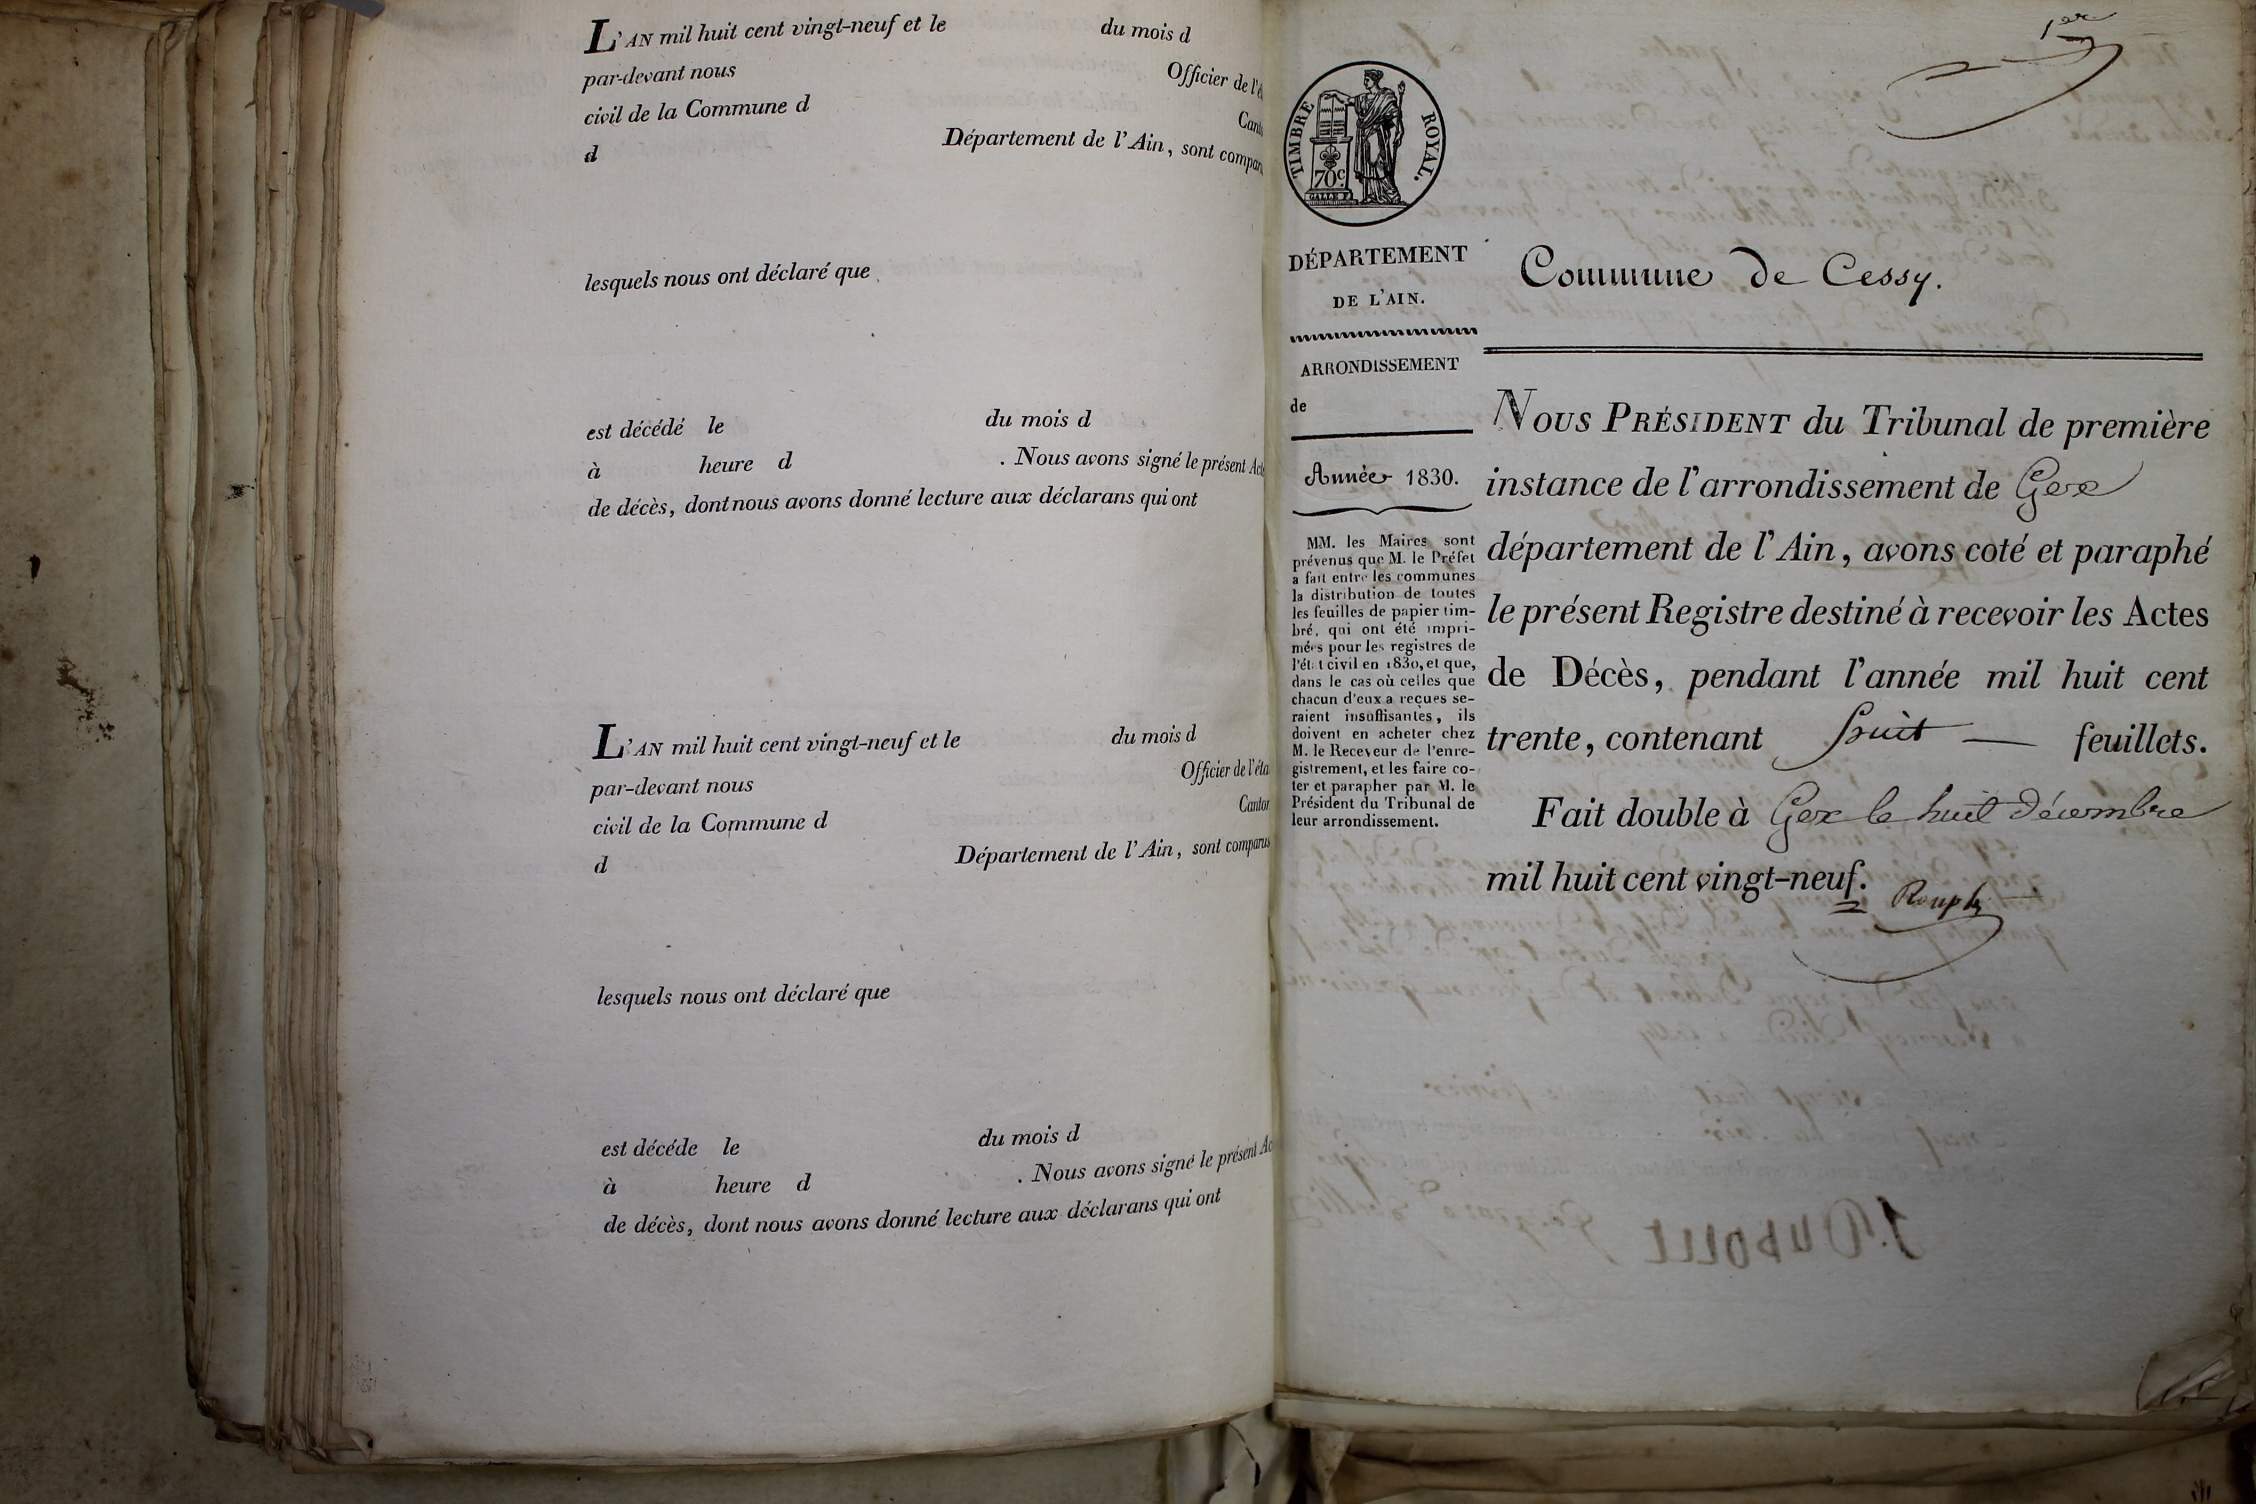 L'AN mil huit cent vingt-neuf et le du mois d
par-devant nous Officier de l'é
civil de la Commune d Cant
d Département de l'Ain, sont compar
lesquels nous ont déclaré que
est décédé le du mois d
à heure d . Nous avons signé le présent Act
de décès, dont nous avons donné lecture aux déclarans qui ont
L'AN mil huit cent vingt-neuf et le du mois d
par-devant nous Officier de l'éta
civil de la Commune d Canton
d Département de l'Ain, sont comparus
lesquels nous ont déclaré que
est décéde le du mois d
à heure d . Nous avons signé le présent Ac
de décès, dont nous avons donné lecture aux déclarans qui ont
1er
TIMBRE ROYAL.
70c.
DÉPARTEMENT
DE L'AIN.
ARRONDISSEMENT
de
Année 1830.
MM. les Maires sont
prévenus que M. le Préfet
a fait entre les communes
la distribution de toutes
les feuilles de papier tim-
bré, qui ont été impri-
mées pour les registres de
l'état civil en 1830, et que,
dans le cas où celles que
chacun d'eux a reçues se-
raient insuffisantes, ils
doivent en acheter chez
M. le Receveur de l'enre-
gistrement, et les faire co-
ter et parapher par M. le
Président du Tribunal de
leur arrondissement.
Commune de Cessy.
NOUS PRÉSIDENT du Tribunal de première
instance de l'arrondissement de Gex
département de l'Ain, avons coté et paraphé
le présent Registre destiné à recevoir les Actes
de Décès, pendant l'année mil huit cent
trente, contenant huit feuillets.
Fait double à Gex le huit décembre
mil huit cent vingt-neuf.